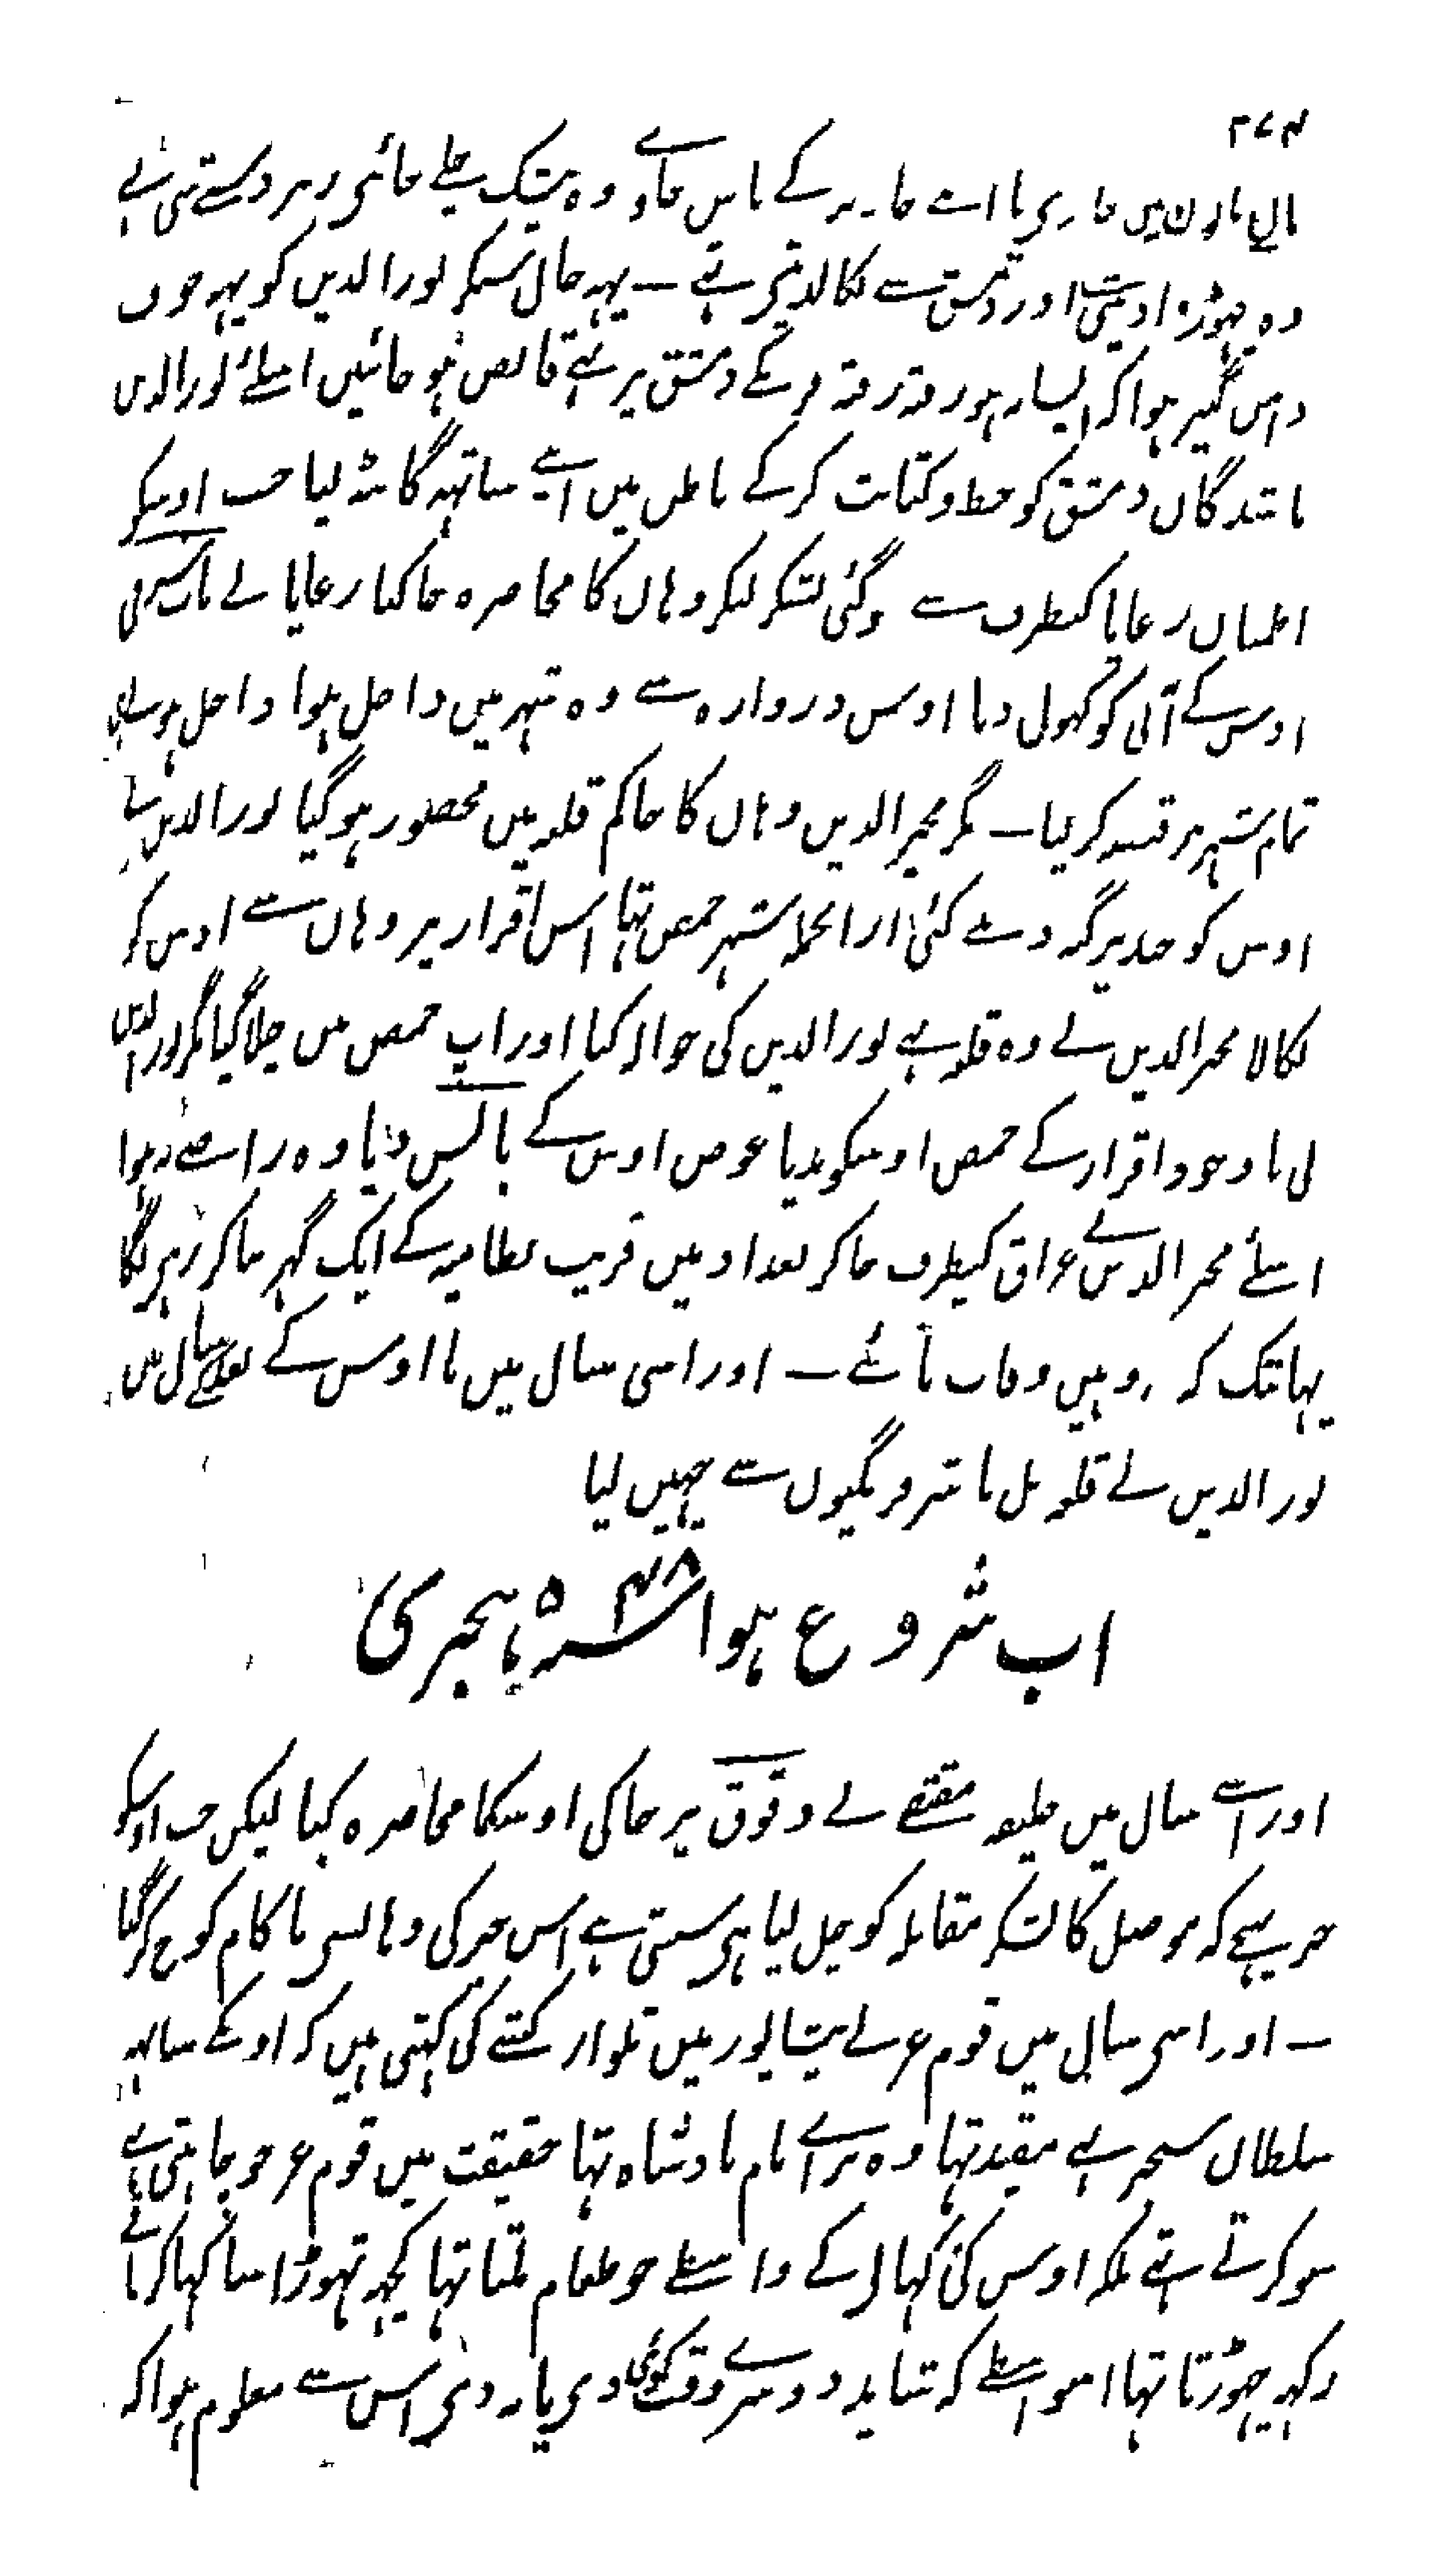 ۲۷۴
مان باون میں جاری یا اپنے خاوند کے پاس جاو وہ بیشک چلے جائیں زبردستے سی نے
وہ چھوڑوا دیتی اور دمشق سے نکالدیتی تہے ــ یہہ حال سنکر نورالدین کو یہہ خوف
دامن گیر ہوا کہ ایسا نہ ہو رفتہ رفتہ فرنگے دمشق پر بہے قابض ہو جائیں اسلئے نورالدین
باشندگان دمشق کو خط و کتابت کر کے باطن میں اپنے ساتہہ گانٹھ لیا جب اوسکو
اطمنان رعایا کیطرف سے ہوگئی لشکر لیکر وہاں کا محاصرہ جا کیا رعایا نے باب شرقی
اوس کے آنی کو کہول دیا اوس دروازہ سے وہ شہر میں داخل ہوا داخل ہوتے ہی
تمام شہر پر قبضہ کر لیا ــ مگر مجیر الدین وہاں کا حاکم قلعہ میں محصور ہو گیا نورالدین نے
اوس کو چند پرگنہ دینے کئی ازانجملہ شہر حمص تہا اس اقرار پر وہاں سے اوس کو
نکالا مجیرالدین نے وہ قلعہ بہے نورالدین کی حوالہ کیا اور آپ حمص میں چلا گیا مگر نورالدین
نی باوجود اقرار کے حمص اوسکو ندیا عوض اوس کے بالس دیا وہ راضے نہوا
اسلئے مجیر الدین نے عراق کیطرف جا کر بغداد میں قریب نظامیہ کے ایک گہر بنا کر رہنے لگا
یہانتک کہ وہیں وفات پائے ــ اور اسی سال میں یا اوس کے بعد کے سال میں
نورالدین نے قلعہ تل باشر فرنگیوں سے چہین لیا
اب شروع ہوا سنہ ۵۴۸ ہجری
اور اسے سال میں خلیفہ مقتفے نے دقوق پر جا کی اوسکا محاصرہ کیا لیکن جب اوسکو
خبر پہنچے کہ موصل کا لشکر مقابلہ کو چل لیا ہی سنتی ہے اس خبر کی وہانسی ناکام کوچ کر گیا
ــ اور اسی سال میں قوم غز نے نیشاپور میں تلوار کشے کی کہتی ہیں کہ اونکے ساتہہ
سلطان سنجر بہے مقید تہا وہ برائے نام بادشاہ تہا حقیقت میں قوم غز جو چاہتی تہے
سو کرتے تہے بلکہ اوس کی کہانی کے واسطے جو طعام ملتا تہا کچہہ تہوڑا سا کہا کر باقے
رکہہ چہوڑتا تہا اسواسطے کہ شاید دوسرے وقت کوئی دی یا نہ دی اس سے معلوم ہوا کہ